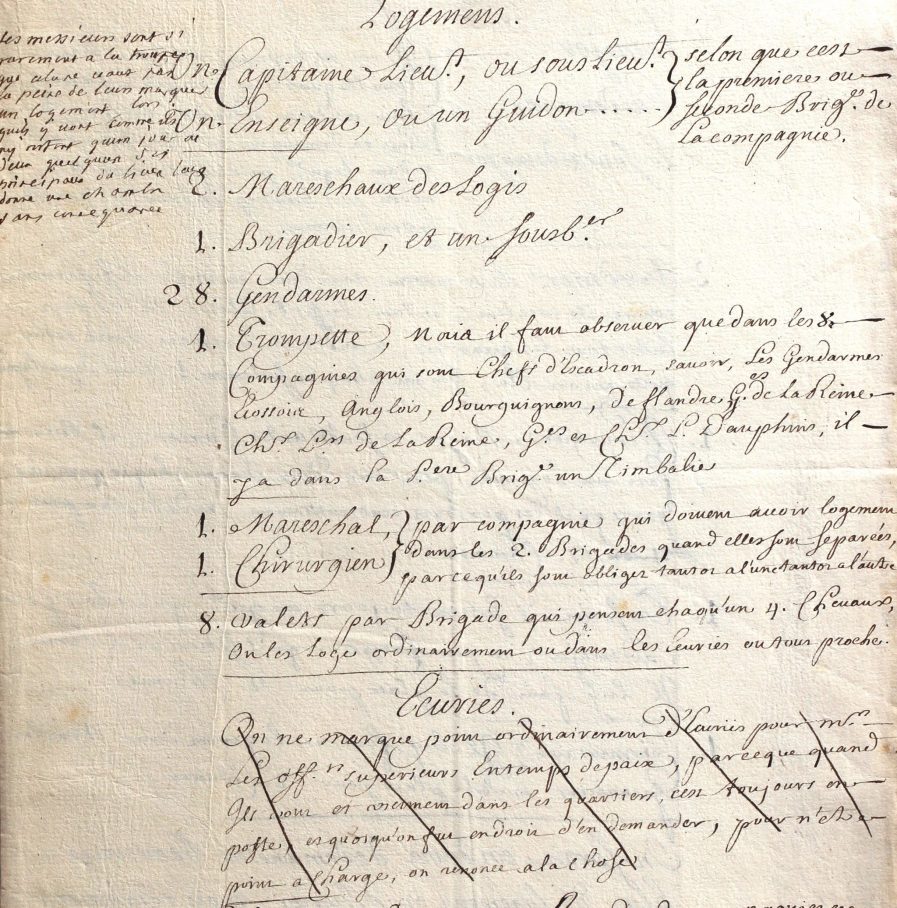 Logemens.
les messieurs sont si
rarement a la troupe
que cela ne vaut pas
la peine de leur marquer
un logement lors
quils y vont comme ils
ny restent quun jour ou
deux quelquun des
principaux du lieu leur
donne une chambre
sans consequence
Un Capitaine Lieut., ou sous Lieut. } selon que c'est
la premiere ou
Un Enseigne, ou un Guidon..... } seconde Brig.e de
La compagnie.
2. Mareschaux des Logis
1. Brigadier, et un sousb.er
28. Gendarmes.
1. Trompette, mais il faut observer que dans les 8.
Compagnies qui sont Chefs d'Escadron, savoir, Les Gendarmes
Ecossois, Anglois, Bourguignons, de flandre, G.es de La Reine
Ch.x L.rs de La Reine, G.es et Ch.x L. Dauphins, il
y a dans la P.ere Brig.e un Timbalie
1. Mareschal, } par compagnie qui doivent avoir logement
dans les 2. Brigades quand elles sont separées,
1. Chirurgien } parce qu'ils sont obligez tantot a l'une tantot a l'autre
8. valets par Brigade qui pensent chaqu'un 4. Chevaux,
On les Loge ordinairement ou dans les Ecuries ou tous proche.
Ecuries.
On ne marque point ordinairement d'Ecuries pour m.rs
Les off.rs superieurs En temps de paix, parceque quand
Ils vont et viennent dans les quartiers, c'est toujours en
poste, et quoiqu'on fut en droit d'en demander, pour n'etre
point a charge, on renonce a la chose